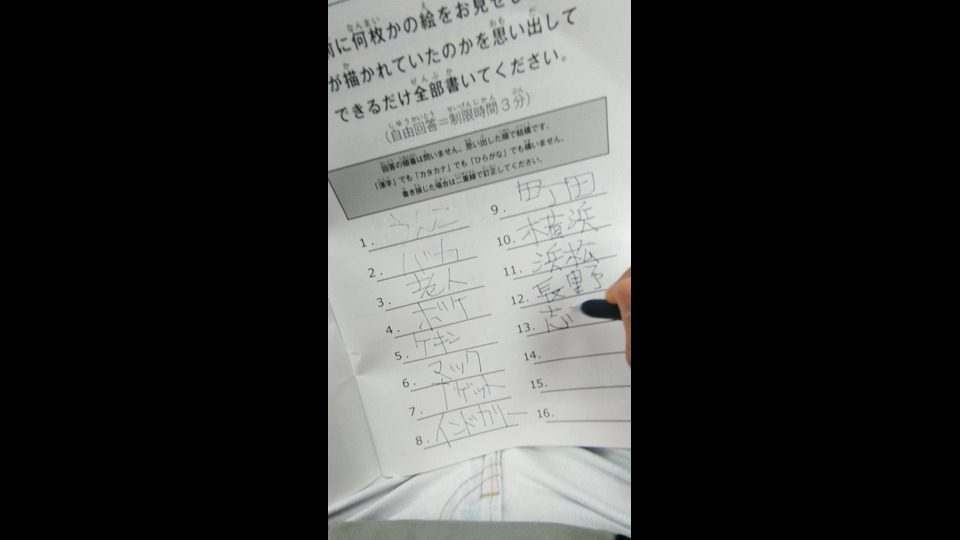 前に何枚かの絵をお見せし
が描かれていたのかを思い出して
できるだけ全部書いてください。
(自由回答=制限時間3分)
回答の順番は問いません。思い出した順で結構です。
「漢字」でも「カタカナ」でも「ひらがな」でも構いません。
書き損じた場合は二重線で訂正してください。
1. うんこ
2. バカ
3. 老人
4. ボケ
5. ケキン
6. マック
7. ナゲット
8. インドカリー
9. 町田
10. 横浜
11. 浜松
12. 長野
13. 志
14.
15.
16.